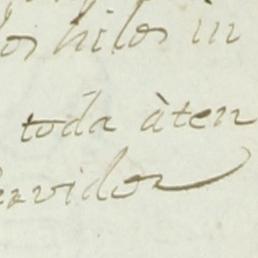 los hilos in
toda àten
servidor